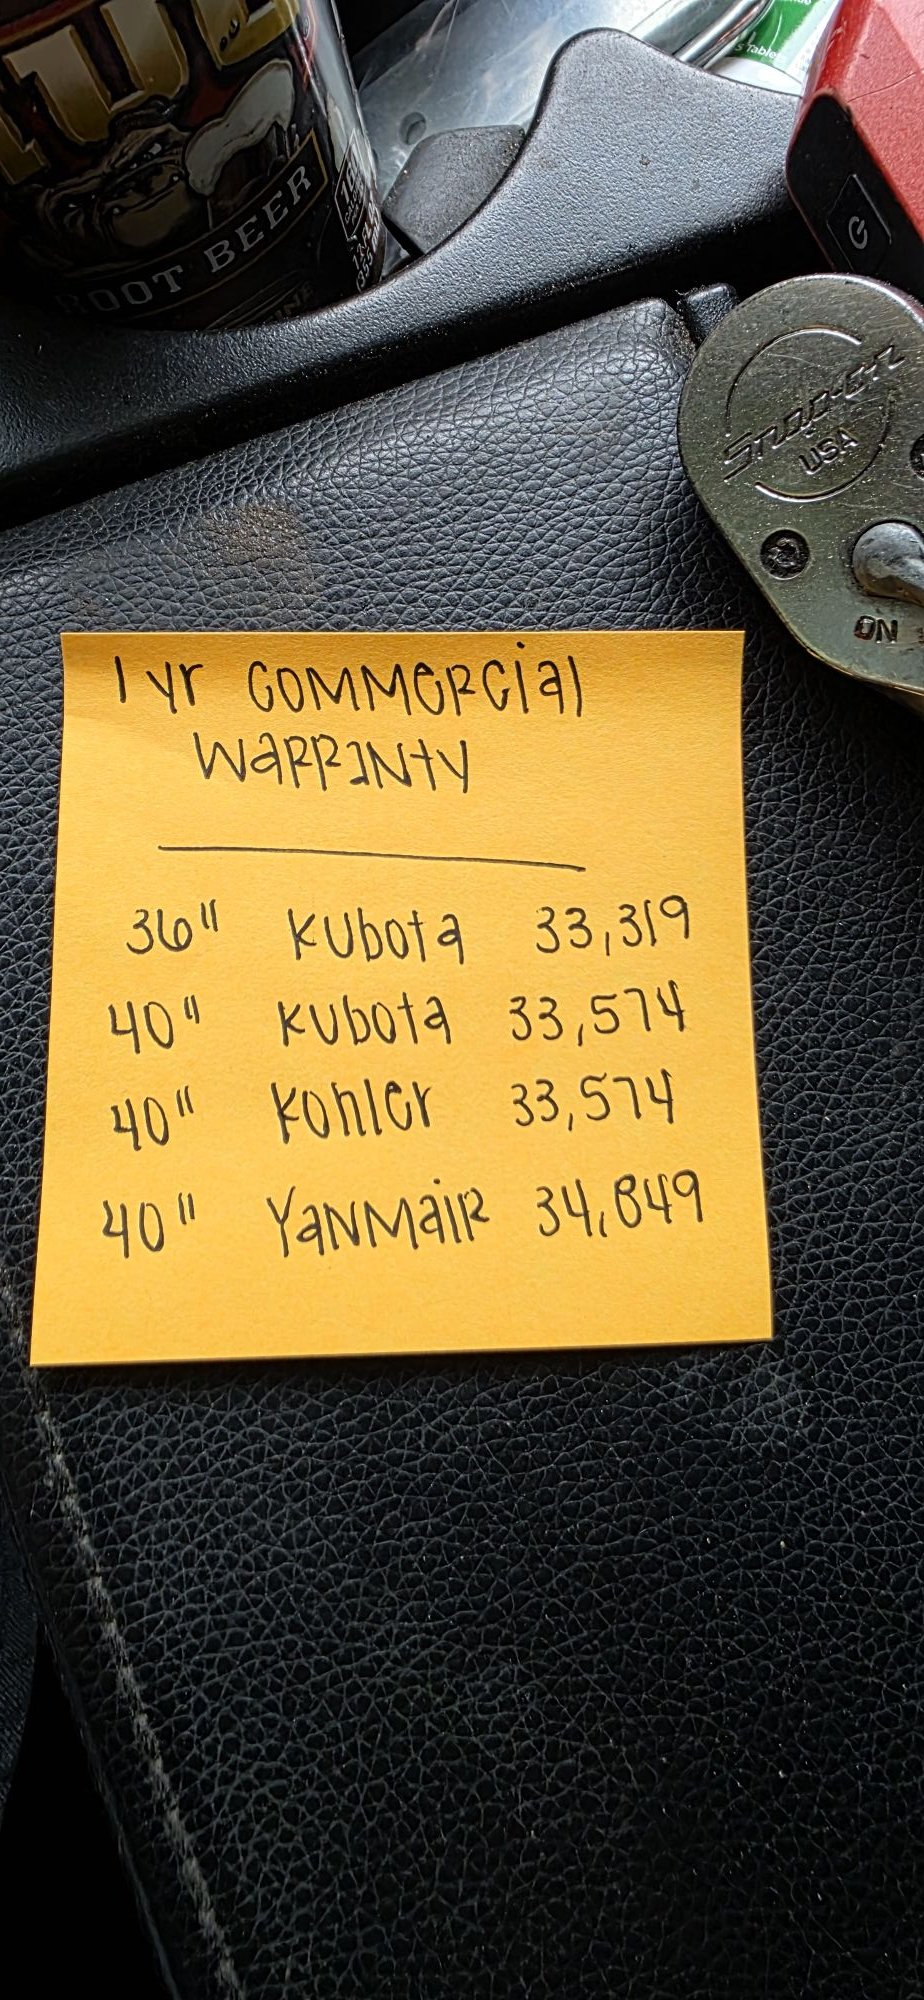 ROOT BEER
s Table
Snap-on
USA
ON
1 yr commercial
warranty
36" Kubota 33,319
40" Kubota 33,574
40" Kohler 33,574
40" Yanmair 34,849